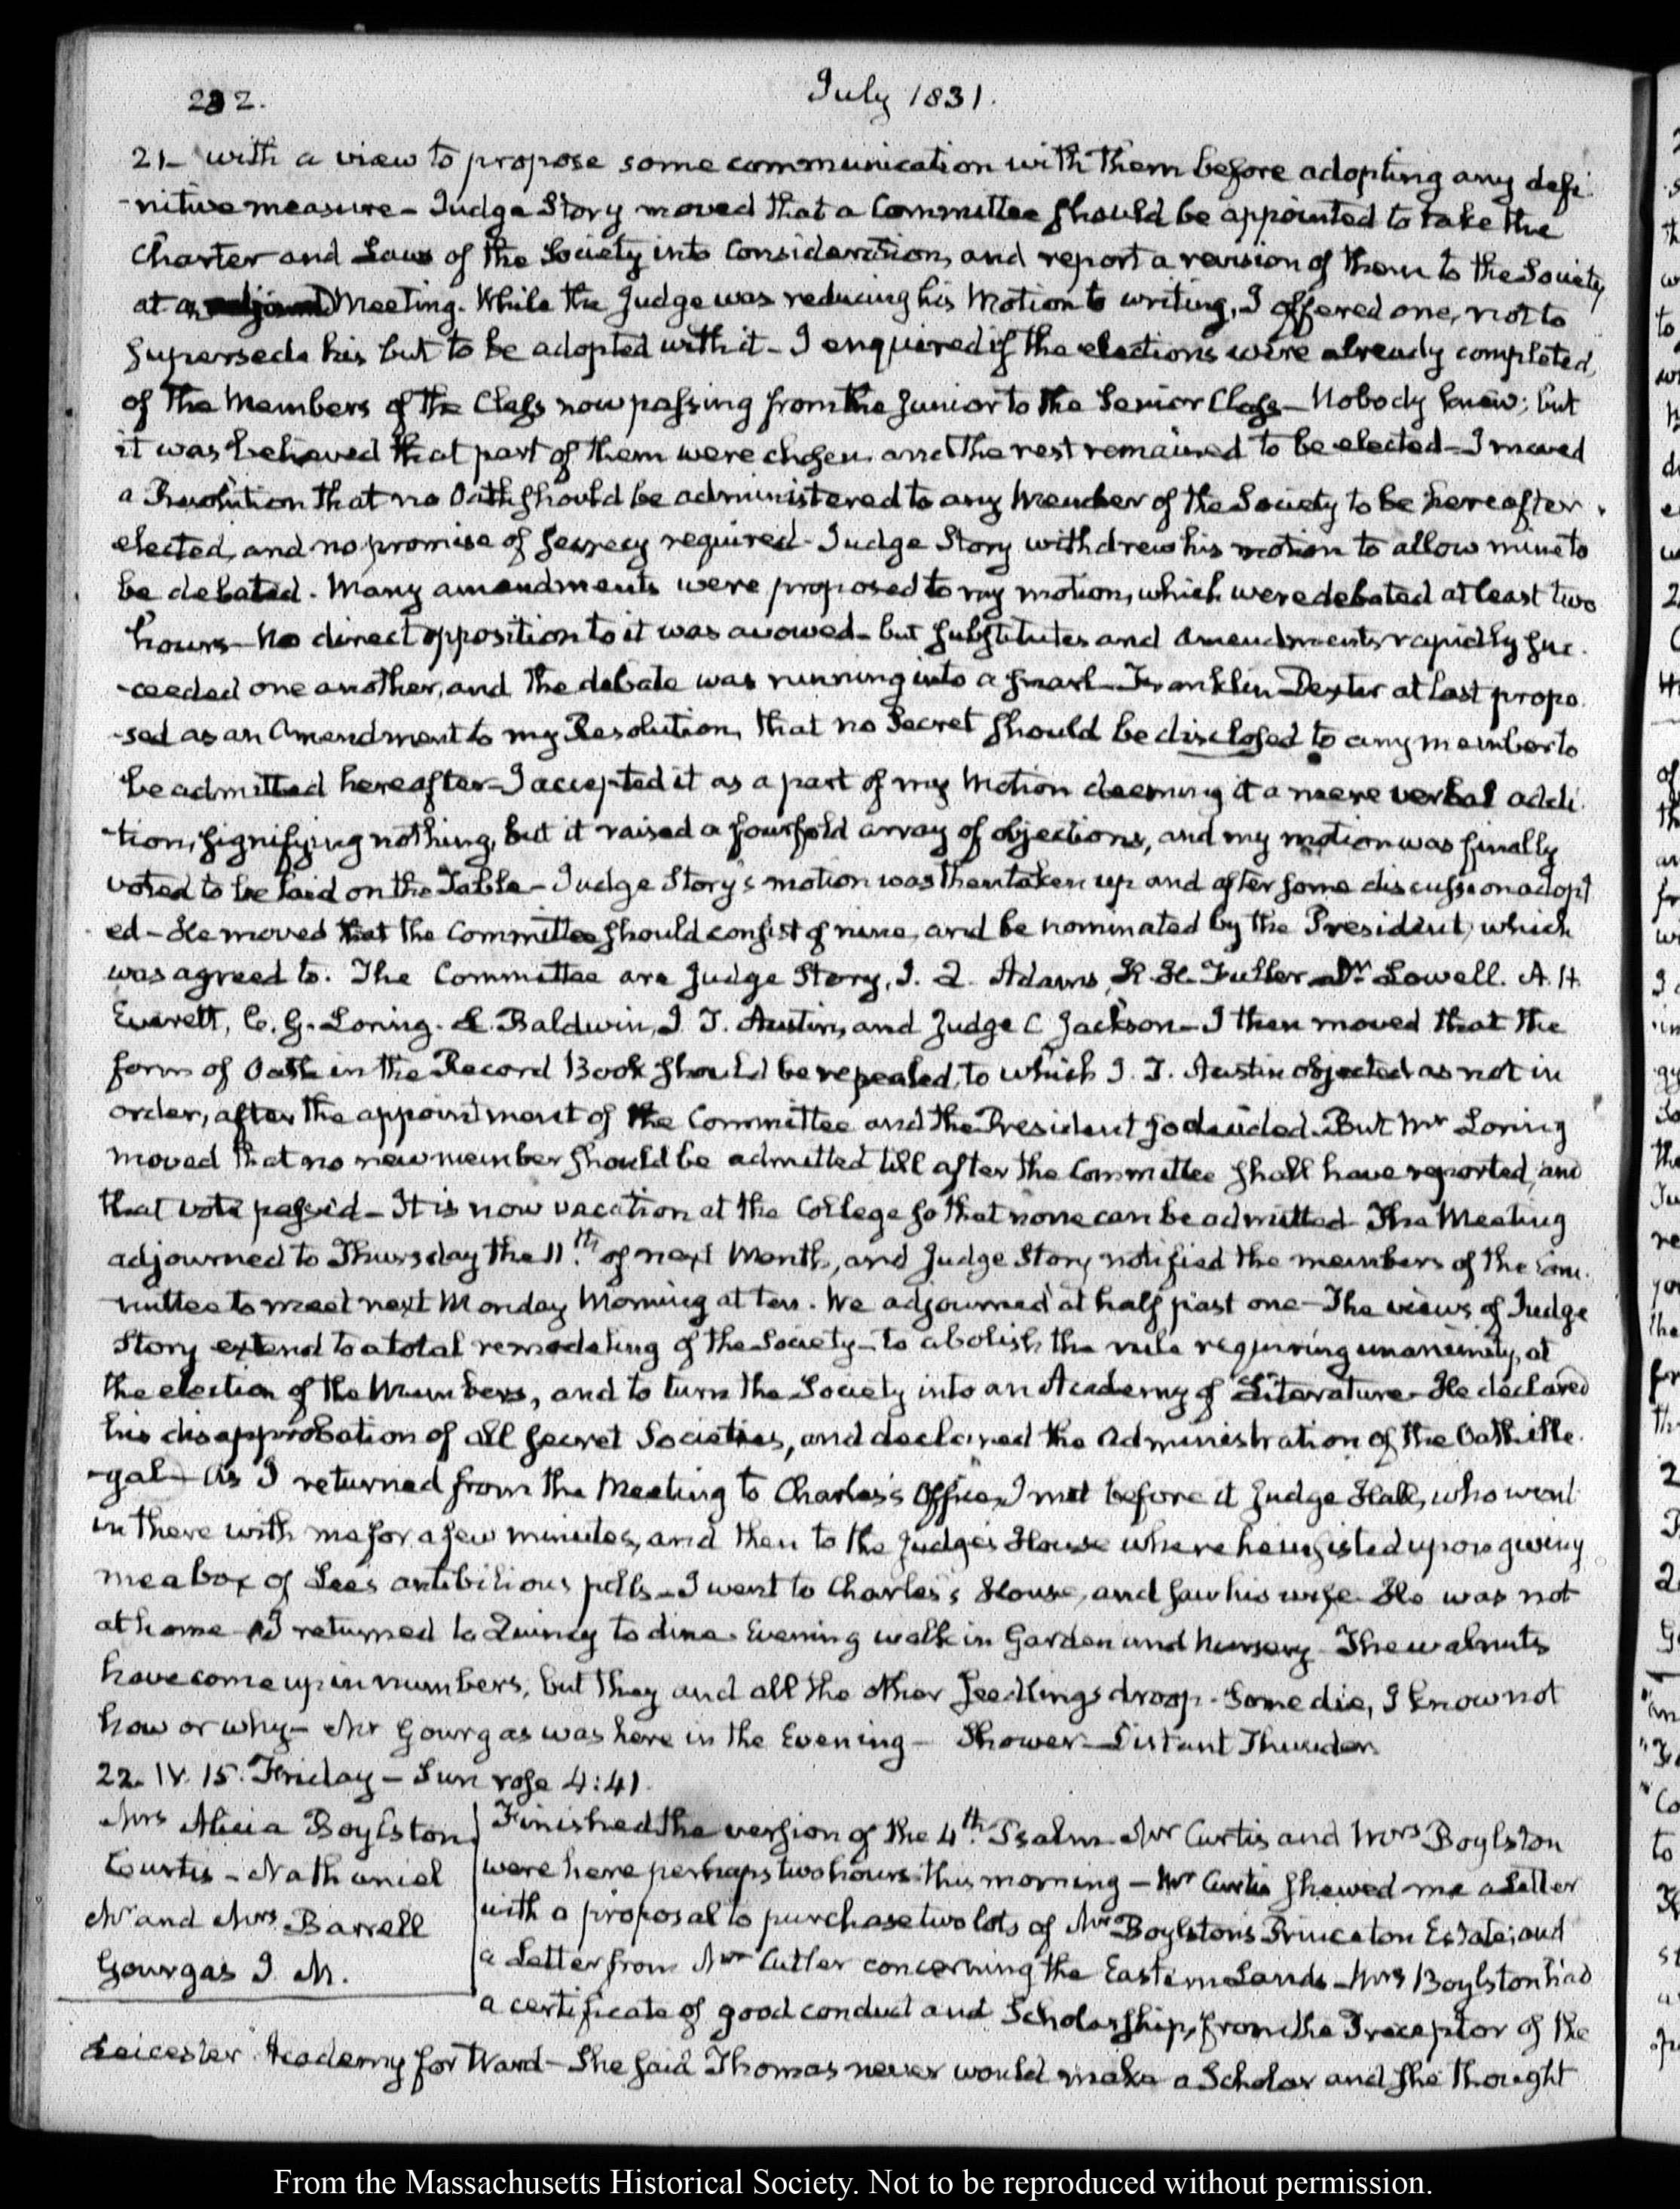 232.
July 1831.
21 – with a view to propose some communication with them before adopting any defi-
-nitive measure – Judge Story moved that a Committee should be appointed to take the
Charter and Laws of the Society into Consideration, and report a revision of them to the Society,
at an Meeting. While the Judge was reducing his Motion to writing, I offered one, not to
supersede his but to be adopted with it – I enquired if the elections were already completed,
of the Members of the Class now passing from the Junior to the Senior Class – Nobody knew; but
it was believed that part of them were chosen and the rest remained to be elected – I moved
a Resolution that no Oath should be administered to any Member of the Society to be hereafter
elected, and no promise of secrecy required – Judge Story withdrew his motion to allow mine to
be debated. Many amendments were proposed to my motion, which were debated at least two
hours – No direct opposition to it was avowed – but substitutes and Amendments rapidly suc-
-ceeded one another, and the debate was running into a snarl – Franklin Dexter at last propo-
-sed as an Amendment to my Resolution, that no Secret should be disclosed to any member to
be admitted hereafter – I accepted it as a part of my Motion deeming it a mere verbal addi-
-tion, signifying nothing, but it raised a fourfold array of objections, and my motion was finally
voted to be laid on the Table – Judge Story's motion was then taken up and after some discussion adopt
ed – He moved that the Committee should consist of nine, and be nominated by the President, which
was agreed to. The Committee are Judge Story, J. Q. Adams, H. H. Fuller – Dr Lowell. A. H.
Everett, C. G. Loring. L. Baldwin, J. T. Austin, and Judge C Jackson – I then moved that the
form of Oath in the Record Book should be repealed, to which J. T. Austin objected as not in
order, after the appointment of the Committee and the President so decided. But Mr Loring
moved that no new member should be admitted till after the Committee shall have reported, and
that vote passed – It is now vacation at the College so that none can be admitted – The Meeting
adjourned to Thursday the 11th. of next Month, and Judge Story notified the members of the Com-
-mittee to meet next Monday Morning at ten. We adjourned at half past one – The views of Judge
Story extend to a total remodeling of the Society – to abolish the rule requiring unanimity, at
the election of the Members, and to turn the Society into an Academy of Literature – He declared
his disapprobation of all secret Societies, and declared the Administration of the Oath ille-
-gal – As I returned from the Meeting to Charles's Office, I met before it Judge Hall, who went
in there with me for a few minutes, and then to the Judge's House where he insisted upon giving
me a box of Lee's antibilious pills – I went to Charles's House, and saw his wife. He was not
at home – I returned to Quincy to dine. Evening walk in Garden and Nursery – The walnuts
have come up in numbers, but they and all the other seedlings droop. Some die, I know not
how or why – Mr Gourgas was here in the Evening – Shower – Distant Thunder.
22. IV. 15. Friday – Sun rose 4:41.
Mrs Alicia Boylston
Curtis – Nathaniel
Mr and Mrs Barrell
Gourgas J. M.
Finished the version of the 4th. Psalm – Mr Curtis and Mrs Boylston
were here perhaps two hours this morning – Mr Curtis shewed me a Letter
with a proposal to purchase two lots of Mrs Boylston's Princeton Estate; and
a Letter from Mr Cutler concerning the Eastern Lands – Mrs Boylston had
a certificate of good conduct and Scholarship, from the Preceptor of the
Leicester Academy for Ward – She said Thomas never would make a Scholar and she thought
From the Massachusetts Historical Society. Not to be reproduced without permission.